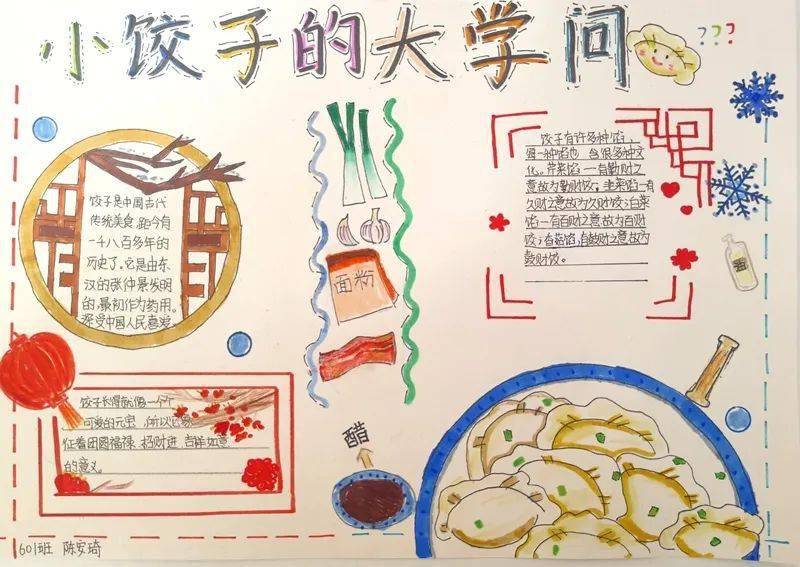 小饺子的大学问 ???
饺子是中国古代
传统美食,距今有
一千八百多年的
历史了。它是由东
汉的张仲景发明
的,最初作为药用。
深受中国人民喜爱。
面粉
饺子有许多种馅,
每一种馅也含很多种文
化。芹菜馅一有勤财之
意故为勤财饺;韭菜馅一有
久财之意故为久财饺;白菜
馅一有百财之意故为百财
饺;香菇馅,有鼓财之意故为
鼓财饺。
饺子长得就像一个个
可爱的元宝,所以它象
征着团圆福禄、招财进 吉祥如意
的意义。
醋
601班 陈安琦